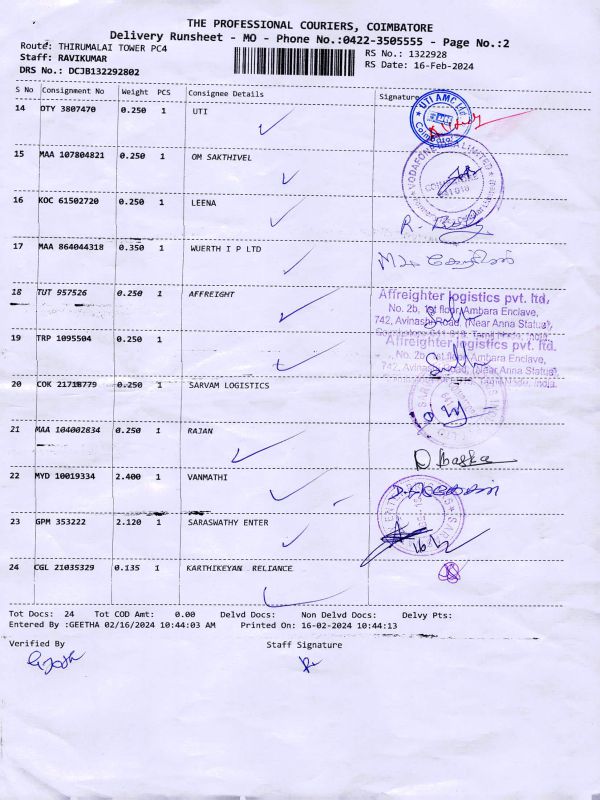 THE PROFESSIONAL COURIERS, COIMBATORE
Delivery Runsheet - MO - Phone No.:0422-3505555 - Page No.:2
Route: THIRUMALAI TOWER PC4 RS No.: 1322928
Staff: RAVIKUMAR RS Date: 16-Feb-2024
DRS No.: DCJB132292802
S No Consignment No Weight PCS Consignee Details Signature
14 DTY 3807470 0.250 1 UTI
UTI AMC Ltd
Coimbatore
15 MAA 107804821 0.250 1 OM SAKTHIVEL
VODAFONE IDEA LIMITED
16 KOC 61502720 0.250 1 LEENA
17 MAA 864044318 0.350 1 WUERTH I P LTD
18 TUT 957526 0.250 1 AFFREIGHT
Affreighter logistics pvt. ltd,
No. 2b, 1st floor, Ambara Enclave,
742, Avinashi Road, (Near Anna Status)
19 TRP 1095504 0.250 1
Affreighter logistics pvt. ltd.
No. 2b, 1st floor, Ambara Enclave,
742, Avinashi Road, (Near Anna Status)
Tamil Nadu, India.
20 COK 21718779 0.250 1 SARVAM LOGISTICS
21 MAA 104002834 0.250 1 RAJAN
22 MYD 10019334 2.400 1 VANMATHI
23 GPM 353222 2.120 1 SARASWATHY ENTER
24 CGL 21035329 0.135 1 KARTHIKEYAN RELIANCE
Tot Docs: 24 Tot COD Amt: 0.00 Delvd Docs: Non Delvd Docs: Delvy Pts:
Entered By :GEETHA 02/16/2024 10:44:03 AM Printed On: 16-02-2024 10:44:13
Verified By Staff Signature